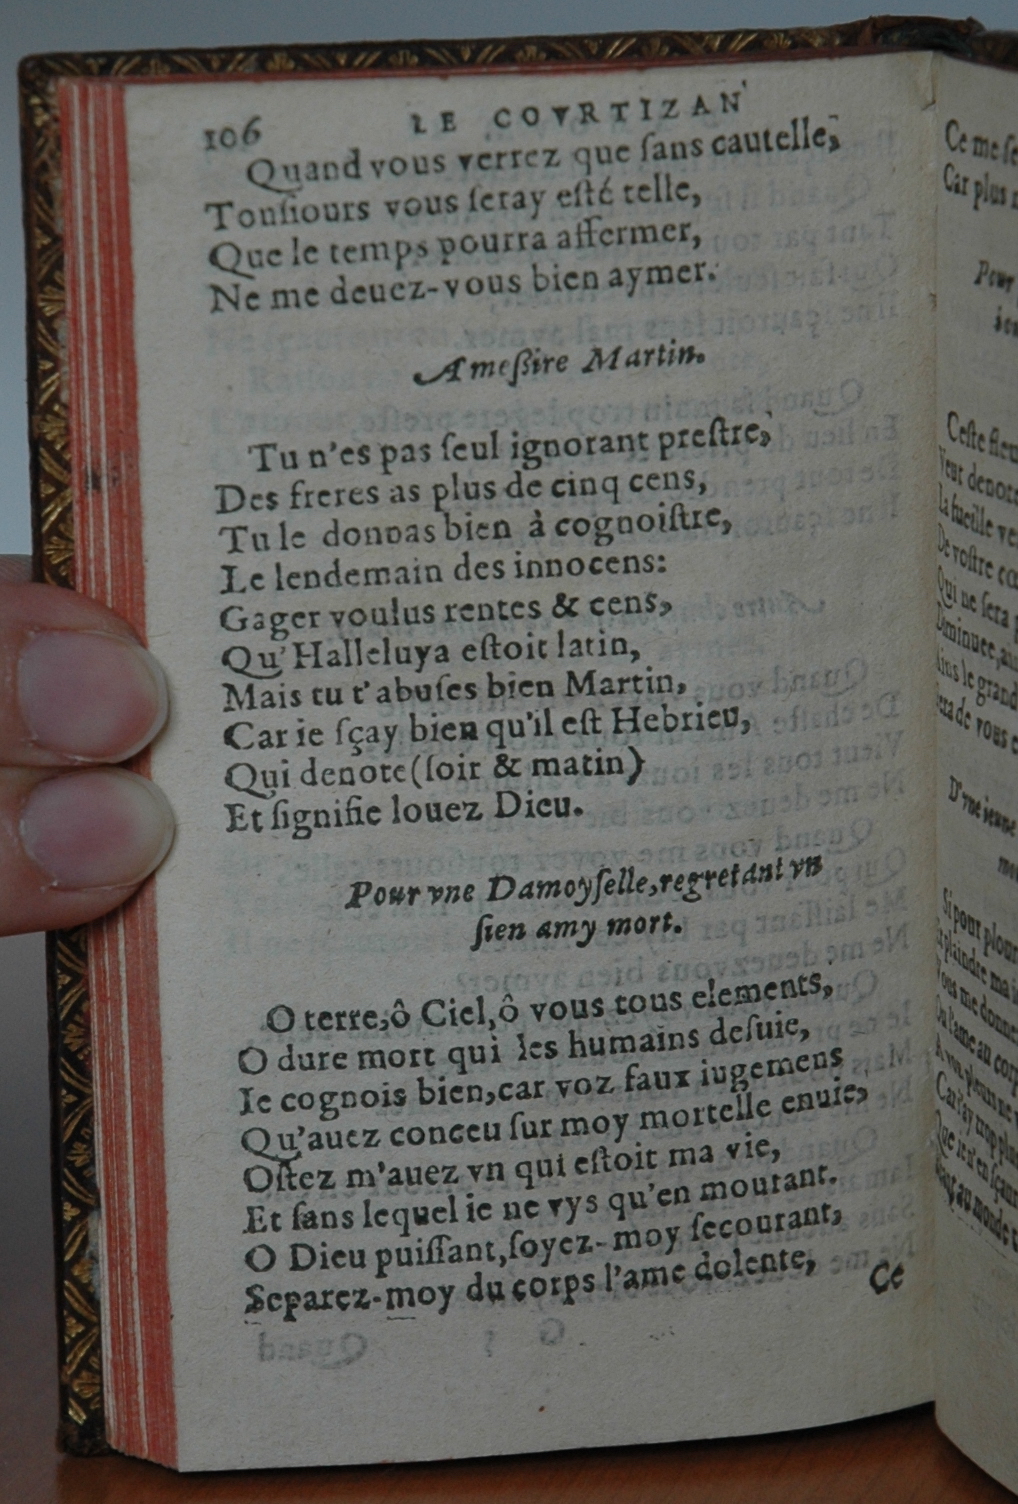 106 LE COVRTIZAN
Quand vous verrez que ſans cautelle,
Touſiours vous ſeray eſté telle,
Que le temps pourra affermer,
Ne me deuez-vous bien aymer.
A meßire Martin.
Tu n'es pas ſeul ignorant preſtre,
Des freres as plus de cinq cens,
Tu le donnas bien à cognoiſtre,
Le lendemain des innocens:
Gager voulus rentes & cens,
Qu'Halleluya eſtoit latin,
Mais tu t'abuſes bien Martin,
Car ie ſçay bien qu'il eſt Hebrieu,
Qui denote (ſoir & matin)
Et ſignifie louez Dieu.
Pour vne Damoyſelle, regretant vn
ſien amy mort.
O terre, ô Ciel, ô vous tous elements,
O dure mort qui les humains deſuie,
Ie cognois bien, car voz faux iugemens
Qu'auez conceu ſur moy mortelle enuie,
Oſtez m'auez vn qui eſtoit ma vie,
Et ſans lequel ie ne vys qu'en mourant.
O Dieu puiſſant, ſoyez-moy ſecourant,
Separez-moy du corps l'ame dolente,
Ce
Ce me
Car plus
Pour
Ceſte
Veut
La fueille
De voſtre
Qui ne ſera
Diminuee,
le grand
de vous
D'vne ieune
Si pour
plaindre ma
Vous me
l'ame au
A vous
Car i'ay trop
Que ie n'en
au monde